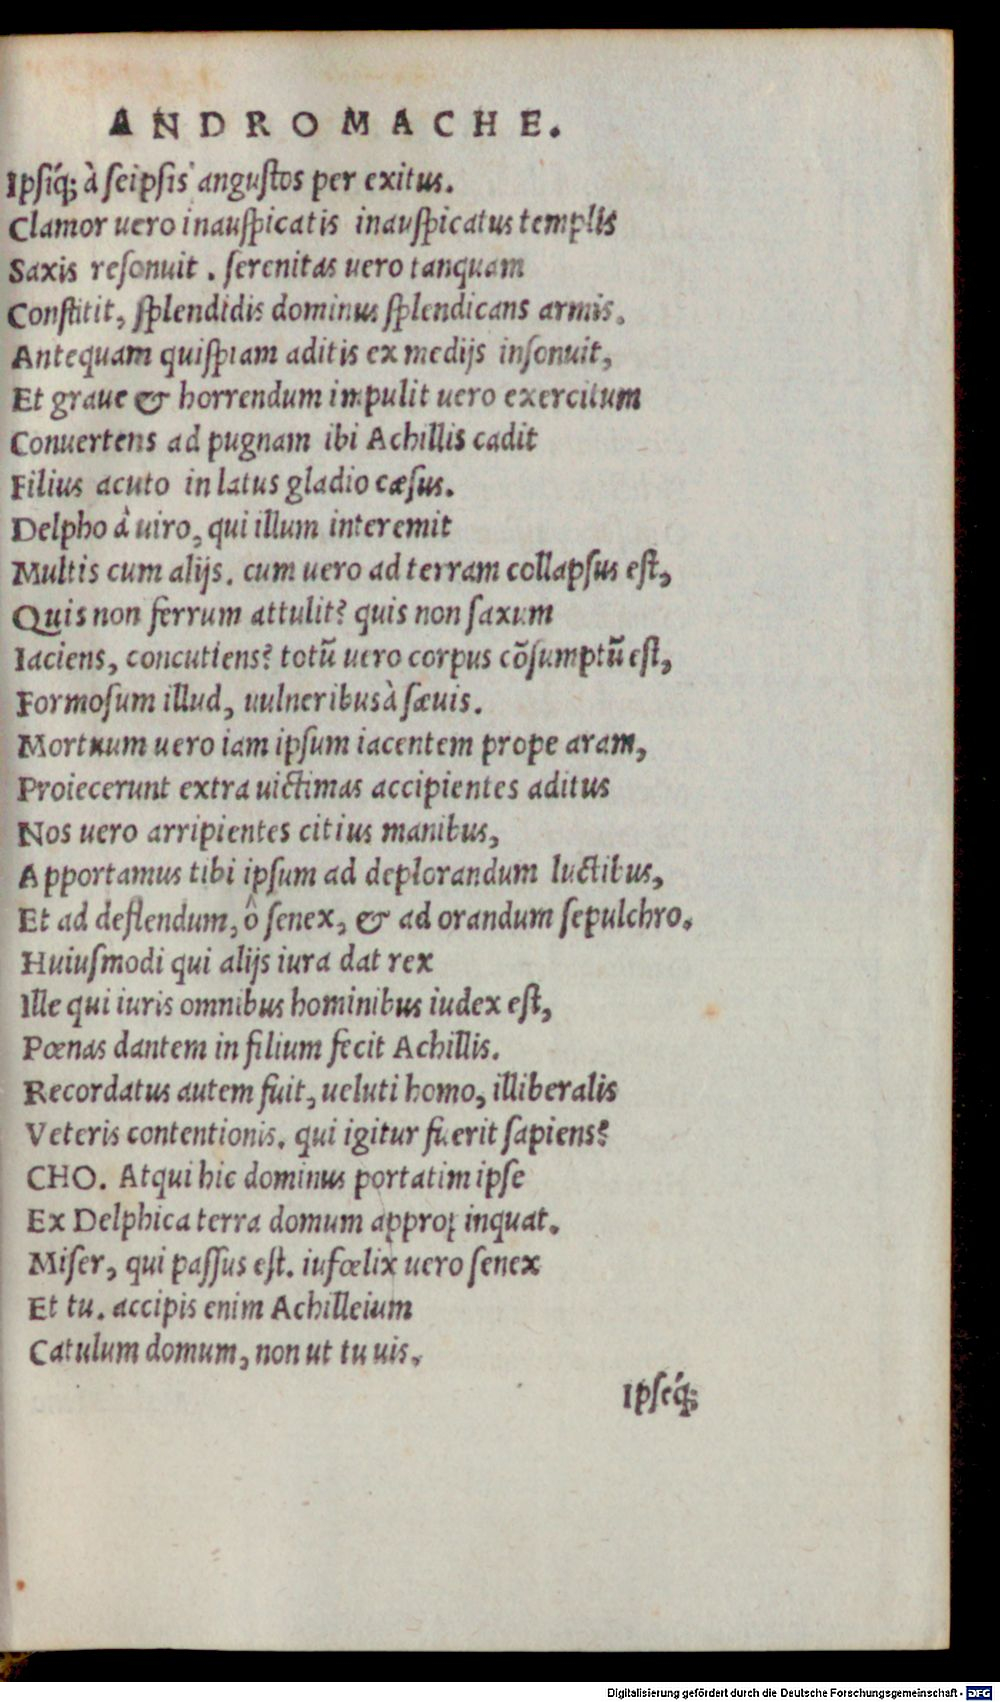 ANDROMACHE.
Ipsíq; à seipsis angustos per exitus.
Clamor uero inauspicatis inauspicatus templis
Saxis resonuit. serenitas uero tanquam
Constitit, splendidis dominus splendicans armis.
Antequam quispiam aditis ex medijs insonuit,
Et graue & horrendum impulit uero exercitum
Conuertens ad pugnam ibi Achillis cadit
Filius acuto in latus gladio cæsus.
Delpho à uiro, qui illum interemit
Multis cum alijs. cum uero ad terram collapsus est,
Quis non ferrum attulit? quis non saxum
Iaciens, concutiens? totũ uero corpus cõsumptũ est,
Formosum illud, uulneribus à sæuis.
Mortuum uero iam ipsum iacentem prope aram,
Proiecerunt extra uictimas accipientes aditus
Nos uero arripientes citius manibus,
Apportamus tibi ipsum ad deplorandum luctibus,
Et ad deflendum, ô senex, & ad orandum sepulchro.
Huiusmodi qui alijs iura dat rex
Ille qui iuris omnibus hominibus iudex est,
Pœnas dantem in filium fecit Achillis.
Recordatus autem fuit, ueluti homo, illiberalis
Veteris contentionis. qui igitur fuerit sapiens?
CHO. Atqui hic dominus portatim ipse
Ex Delphica terra domum appropinquat.
Miser, qui passus est. iufœlix uero senex
Et tu. accipis enim Achilleium
Catulum domum, non ut tu uis,
Ipséq;
Digitalisierung gefördert durch die Deutsche Forschungsgemeinschaft - DFG